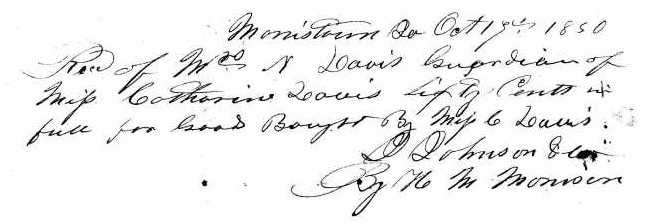 Morristown Oct 19th 1850
Recd of Mrs N Davis Guardian of
Miss Catharine Davis Fifty Cents in
full for Good Bought By Miss C Davis.
D Johnson
By H M Morrison